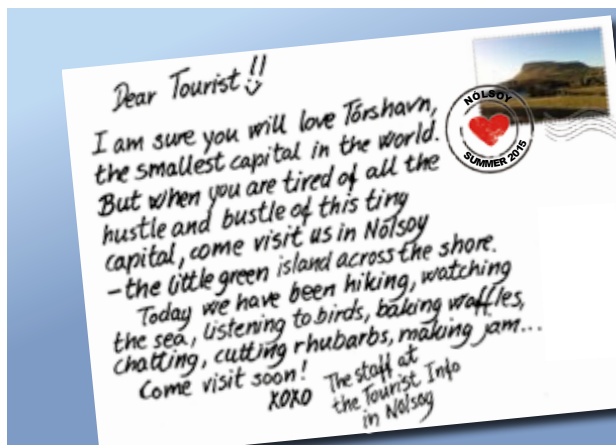 Dear Tourist!!
I am sure you will love Tórshavn,
the smallest capital in the world.
But when you are tired of all the
hustle and bustle of this tiny
capital, come visit us in Nólsoy
– the little green island across the shore.
Today we have been hiking, watching
the sea, listening to birds, baking waffles,
chatting, cutting rhubarbs, making jam...
Come visit soon!
XOXO
The staff at
the Tourist Info
in Nólsoy
NÓLSOY
SUMMER 2015